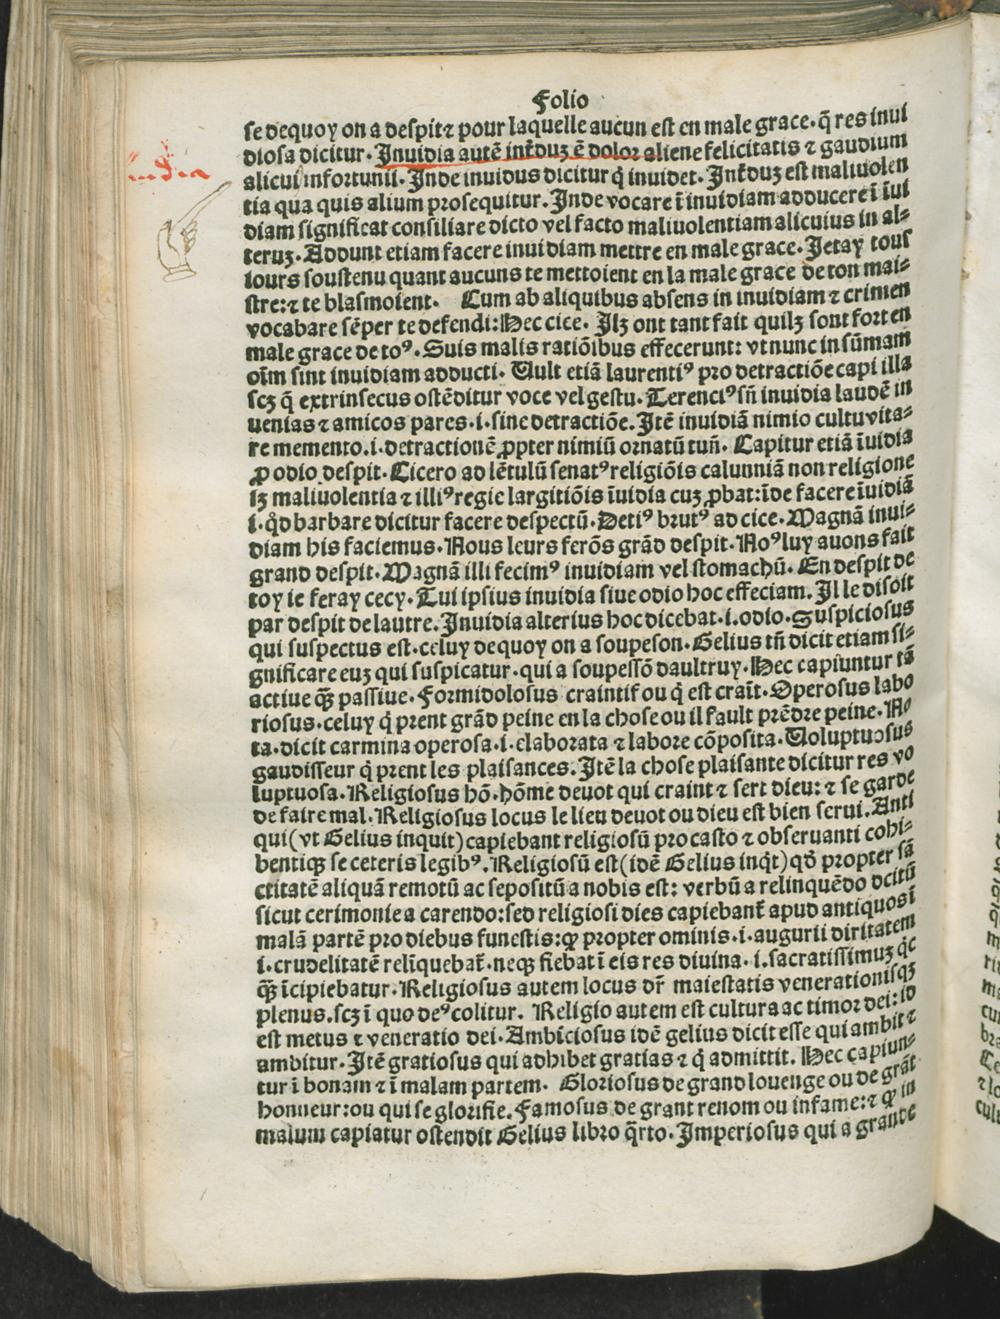 Folio
se dequoy on a despit⁊ pour laquelle aucun est en male grace. q̄ res inui
diosa dicitur. Inuidia autē int̄duʒ ē dolor aliene felicitatis ⁊ gaudium
alicui infortunii. Inde inuidus dicitur q̇ inuidet. Int̄duʒ est maliuolen
tia qua quis alium prosequitur. Inde vocare ī inuidiam adducere ī īui
diam significat consiliare dicto vel facto maliuolentiam alicuius in al⸗
teruʒ. Addunt etiam facere inuidiam mettre en male grace. Ietay tous
iours soustenu quant aucuns te mettoient en la male grace de ton mai⸗
stre:⁊ te blasmoient. Cum ab aliquibus absens in inuidiam ⁊ crimen
vocabare sēper te defendi:Hec cice. Ilʒ ont tant fait quilʒ sont fort en
male grace de toꝰ. Suis malis ratiōibus effecerunt: vt nunc in sūmam
oīm sint inuidiam adducti. Uult etiā laurentiꝰ pro detractiōe capi illa
scʒ q̄ extrinsecus ostēditur voce vel gestu. Terenciꝰ sn̄ inuidia laudē in
uenias ⁊ amicos pares.i.sine detractiōe. Itē inuidiā nimio cultu vita⸗
re memento.i.detractionē ꝓpter nimiū ornatū tuū. Capitur etiā īuidia
ꝓ odio despit. Cicero ad lētulū senatꝰ religiōis calunniā non religione
lʒ maliuolentia ⁊ illiꝰ regie largitiōis īuidia cuʒ ꝓbat:īde facere īuidiā
i.qd̊ barbare dicitur facere despectū. Detiꝰ brutꝰ ad cice. Magnā inui⸗
diam his faciemus. Nous leurs ferōs grād despit. Noꝰ luy auons fait
grand despit. Magnā illi fecimꝰ inuidiam vel stomachū. En despit de
toy ie feray cecy. Tui ipsius inuidia siue odio hoc effeciam. Il le disoit
par despit de lautre. Inuidia alterius hoc dicebat.i.odio. Suspiciosus
qui suspectus est.celuy dequoy on a soupeson. Gelius tn̄ dicit etiam si⸗
gnificare euʒ qui suspicatur.qui a soupessō daultruy. Hec capiuntur tā
actiue qꝫ̄ passiue. Formidolosus craintif ou q̇ est craīt. Operosus labo
riosus.celuy q̇ prent grād peine en la chose ou il fault prēdre peine. No
ta.dicit carmina operosa.i.elaborata ⁊ labore cōposita. Uoluptuosus
gaudisseur q̇ prent les plaisances. Itē la chose plaisante dicitur res vo
luptuosa. Religiosus hō.hōme deuot qui craint ⁊ sert dieu:⁊ se garde
de faire mal. Religiosus locus le lieu deuot ou dieu est bien serui. Anti
qui(vt Gelius inquit)capiebant religiosū pro casto ⁊ obseruanti cohi⸗
bentiqꝫ se ceteris legibꝰ. Religiosū est(idē Gelius inqt̄)qd̄ propter sā
ctitatē aliquā remotū ac sepositū a nobis est: verbū a relinquēdo dcitū
sicut cerimonie a carendo:sed religiosi dies capiebant̄ apud antiquos ī
malā partē pro diebus funestis:qꝫ propter ominis.i.augurii diritatem
i.crudelitatē relīquebat̄.neqꝫ fiebat ī eis res diuina.i.sacratissimuʒ qc̄
qꝫ̄ īcipiebatur. Religiosus autem locus dr̄ maiestatis venerationisqꝫ
plenus.scʒ ī quo deꝰ colitur. Religio autem est cultura ac timor dei:id
est metus ⁊ veneratio dei. Ambiciosus idē gelius dicit esse qui ambit ⁊
ambitur. Itē gratiosus qui adhibet gratias ⁊ q̇ admittit. Hec capiun⸗
tur ī bonam ⁊ ī malam partem. Gloriosus de grand louenge ou de grāt
honneur:ou qui se glorifie. Famosus de grant renom ou infame:⁊ qꝫ in
malum capiatur ostendit Gelius libro q̄rto. Imperiosus qui a grande